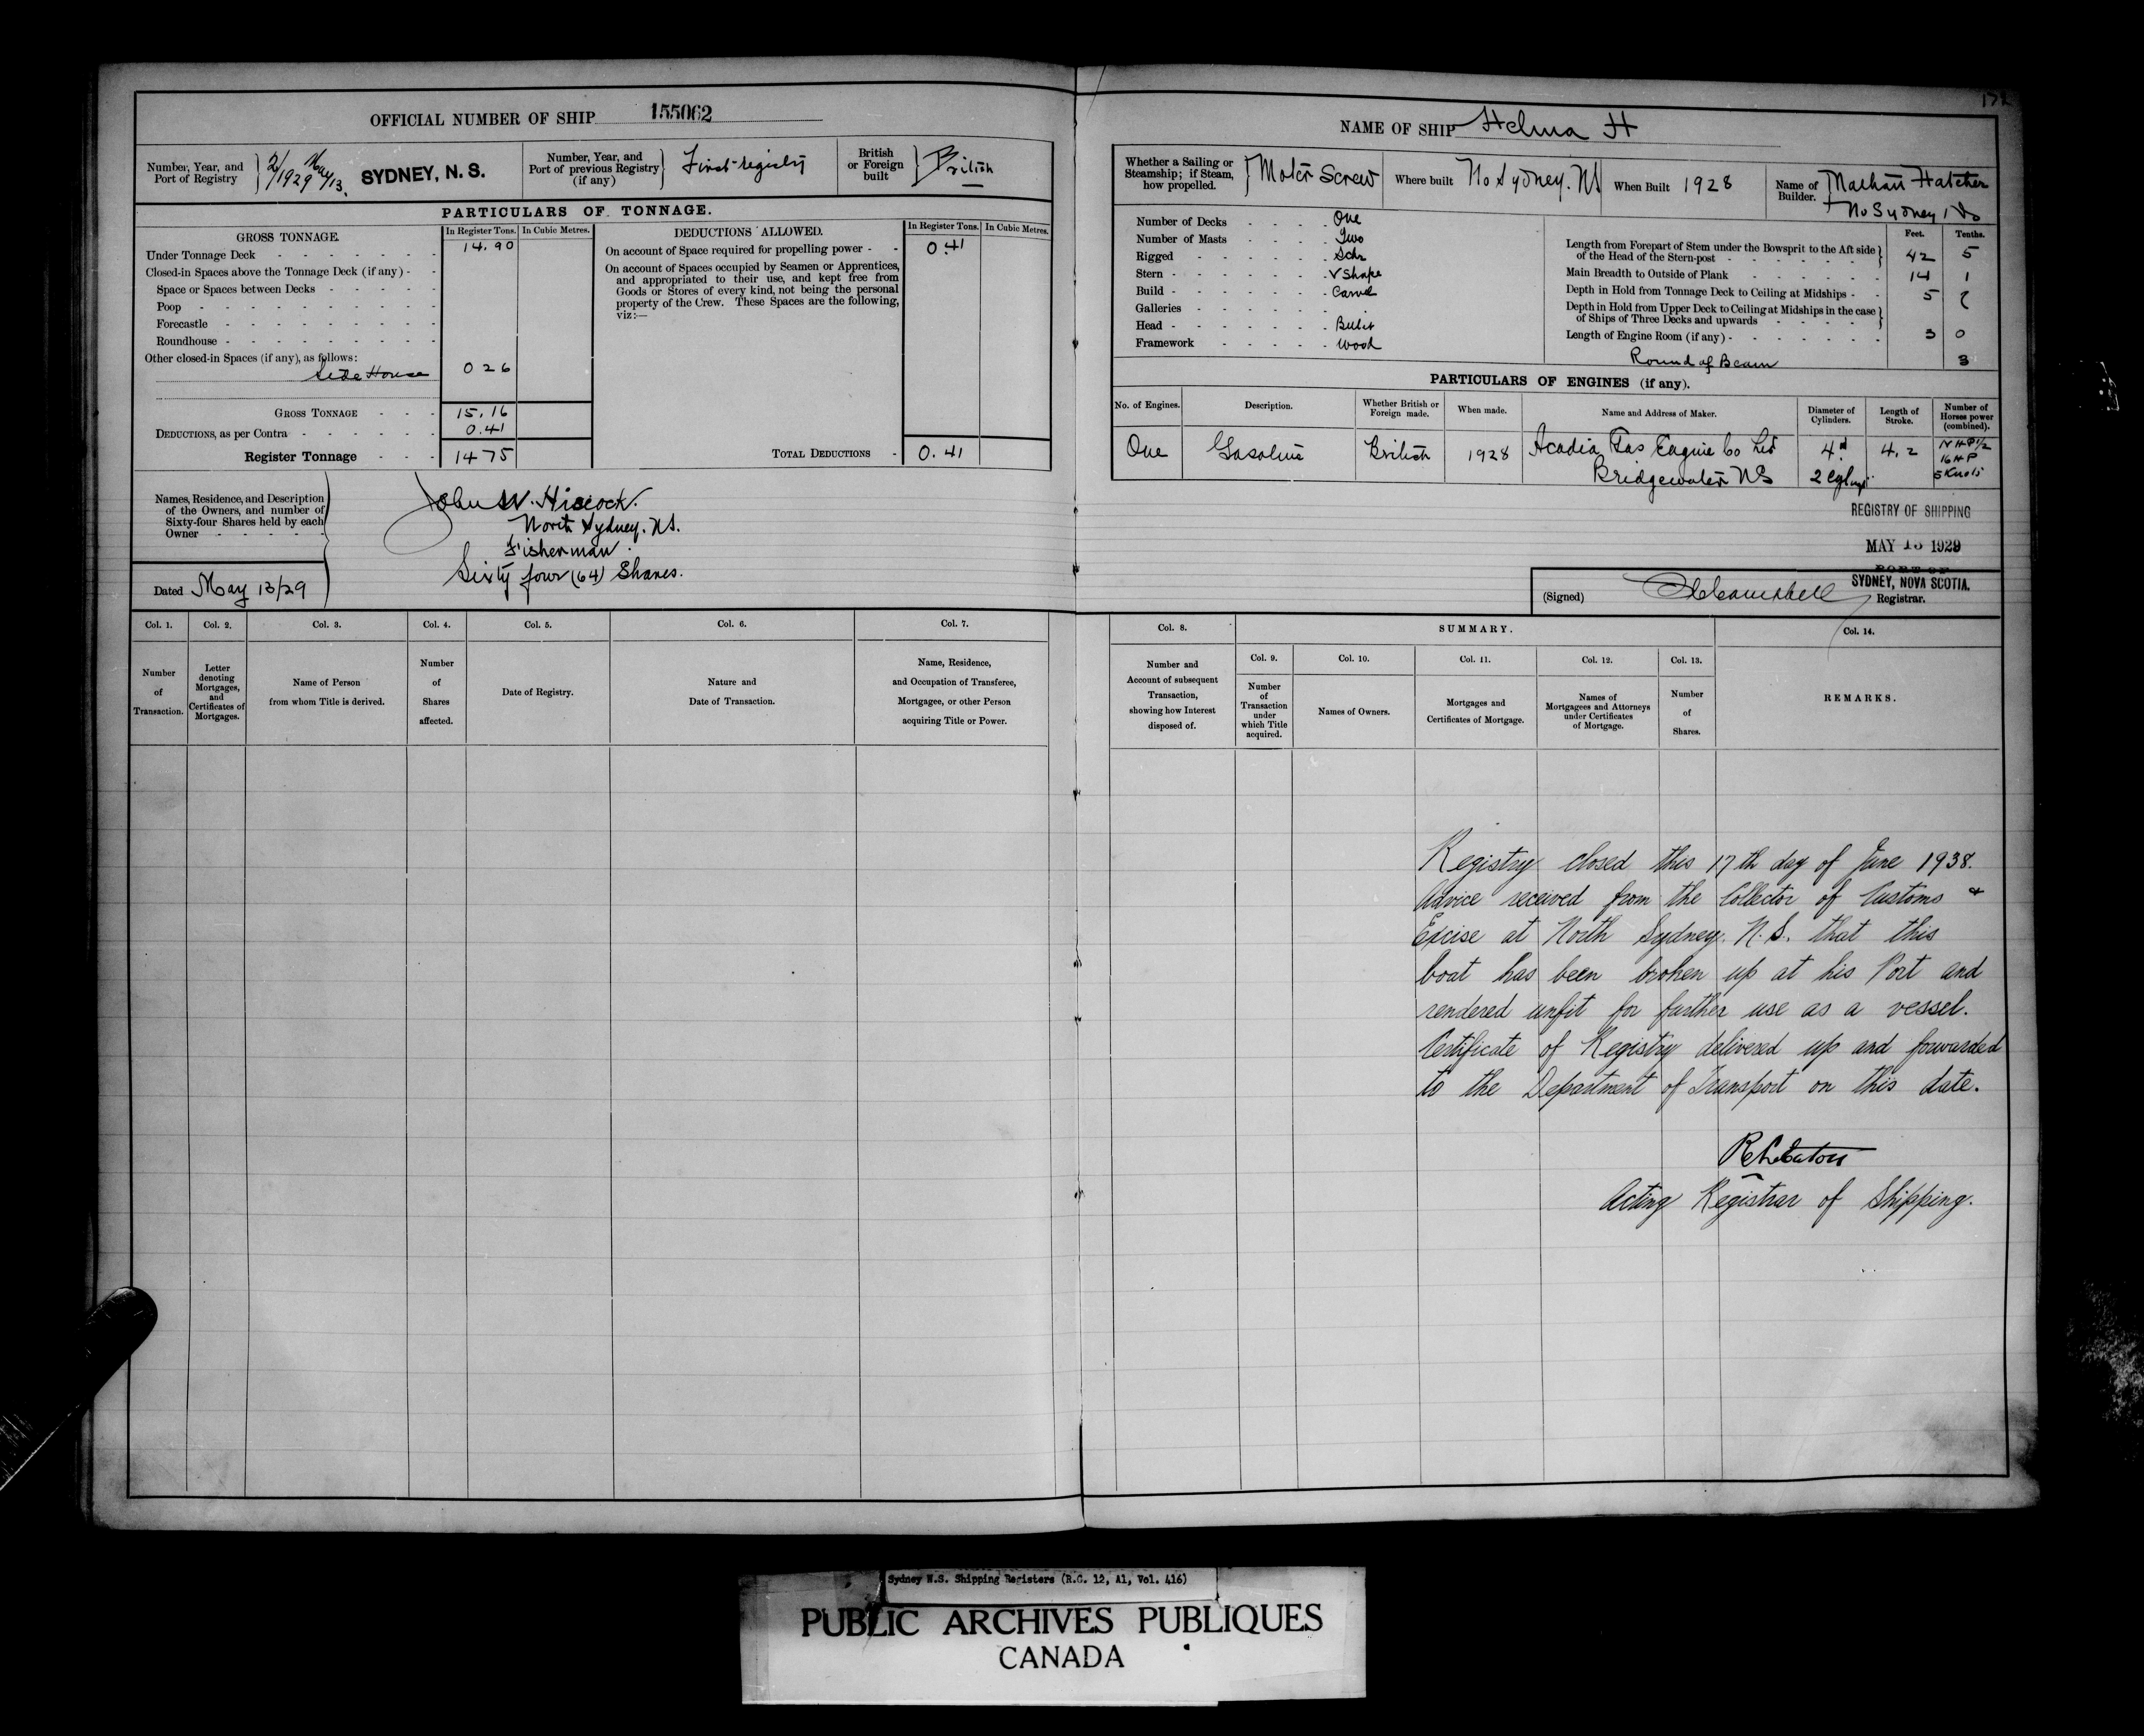 OFFICIAL NUMBER OF SHIP 155062
Number, Year, and Port of Registry 2/1929 May 13. SYDNEY, N. S.
Number, Year, and Port of previous Registry (if any) First registry
British or Foreign built British
PARTICULARS OF TONNAGE.
GROSS TONNAGE. In Register Tons. In Cubic Metres.
Under Tonnage Deck 14.90
Closed-in Spaces above the Tonnage Deck (if any)
Space or Spaces between Decks
Poop
Forecastle
Roundhouse
Other closed-in Spaces (if any), as follows:
Side House 0 26
GROSS TONNAGE 15.16
DEDUCTIONS, as per Contra 0.41
Register Tonnage 14 75
DEDUCTIONS ALLOWED. In Register Tons. In Cubic Metres.
On account of Space required for propelling power 0.41
On account of Spaces occupied by Seamen or Apprentices,
and appropriated to their use, and kept free from
Goods or Stores of every kind, not being the personal
property of the Crew. These Spaces are the following,
viz:—
TOTAL DEDUCTIONS 0.41
Names, Residence, and Description
of the Owners, and number of
Sixty-four Shares held by each
Owner
John W. Hiscock.
North Sydney. NS.
Fisherman.
Sixty four (64) Shares.
Dated May 13/29
Col. 1. Number of Transaction.
Col. 2. Letter denoting Mortgages, and Certificates of Mortgages.
Col. 3. Name of Person from whom Title is derived.
Col. 4. Number of Shares affected.
Col. 5. Date of Registry.
Col. 6. Nature and Date of Transaction.
Col. 7. Name, Residence, and Occupation of Transferee, Mortgagee, or other Person acquiring Title or Power.
NAME OF SHIP Helma H
Whether a Sailing or Steamship; if Steam, how propelled. Motor Screw
Where built No Sydney. NS
When Built 1928
Name of Builder. Nathan Hatcher
No Sydney
Number of Decks One
Number of Masts Two
Rigged Schr
Stern V Shape
Build Carvel
Galleries
Head
Framework Wood
Feet. Tenths.
Length from Forepart of Stem under the Bowsprit to the Aft side of the Head of the Stern-post 42 5
Main Breadth to Outside of Plank 14 1
Depth in Hold from Tonnage Deck to Ceiling at Midships 5
Depth in Hold from Upper Deck to Ceiling at Midships in the case of Ships of Three Decks and upwards
Length of Engine Room (if any) 3 0
Round of Beam 3
PARTICULARS OF ENGINES (if any).
No. of Engines. Description. Whether British or Foreign made. When made. Name and Address of Maker. Diameter of Cylinders. Length of Stroke. Number of Horses power (combined).
One Gasoline British 1928 Acadia Gas Engine Co Ltd 4 4.2 NHP 1/2
16 HP
Bridgewater NS 2 5 Knots
REGISTRY OF SHIPPING
MAY 13 1929
PORT OF
SYDNEY, NOVA SCOTIA.
(Signed) Campbell Registrar.
Col. 8. Number and Account of subsequent Transaction, showing how Interest disposed of.
SUMMARY.
Col. 9. Number of Transaction under which Title acquired.
Col. 10. Names of Owners.
Col. 11. Mortgages and Certificates of Mortgage.
Col. 12. Names of Mortgagees and Attorneys under Certificates of Mortgage.
Col. 13. Number of Shares.
Col. 14. REMARKS.
Registry closed this 17th day of June 1938.
Advice received from the Collector of Customs &
Excise at North Sydney, N.S. that this
boat has been broken up at his Port and
rendered unfit for further use as a vessel.
Certificate of Registry delivered up and forwarded
to the Department of Transport on this date.
Acting Registrar of Shipping.
Sydney N.S. Shipping Registers (R.G. 12, A1, Vol. 416)
PUBLIC ARCHIVES PUBLIQUES
CANADA